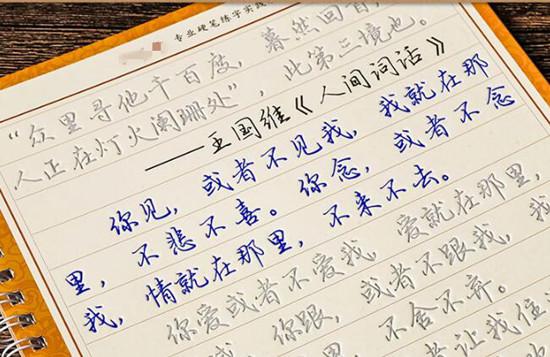 专业硬笔练字实战
“众里寻他千百度，蓦然回首，
人正在灯火阑珊处”，此第三境也。
——王国维《人间词话》
你见，或者不见我，我就在那
里，不悲不喜。你念，或者不念
我，情就在那里，不来不去。
你爱或者不爱我，爱就在那里，
你跟，或者不跟我，我
不舍不弃。
者让我住